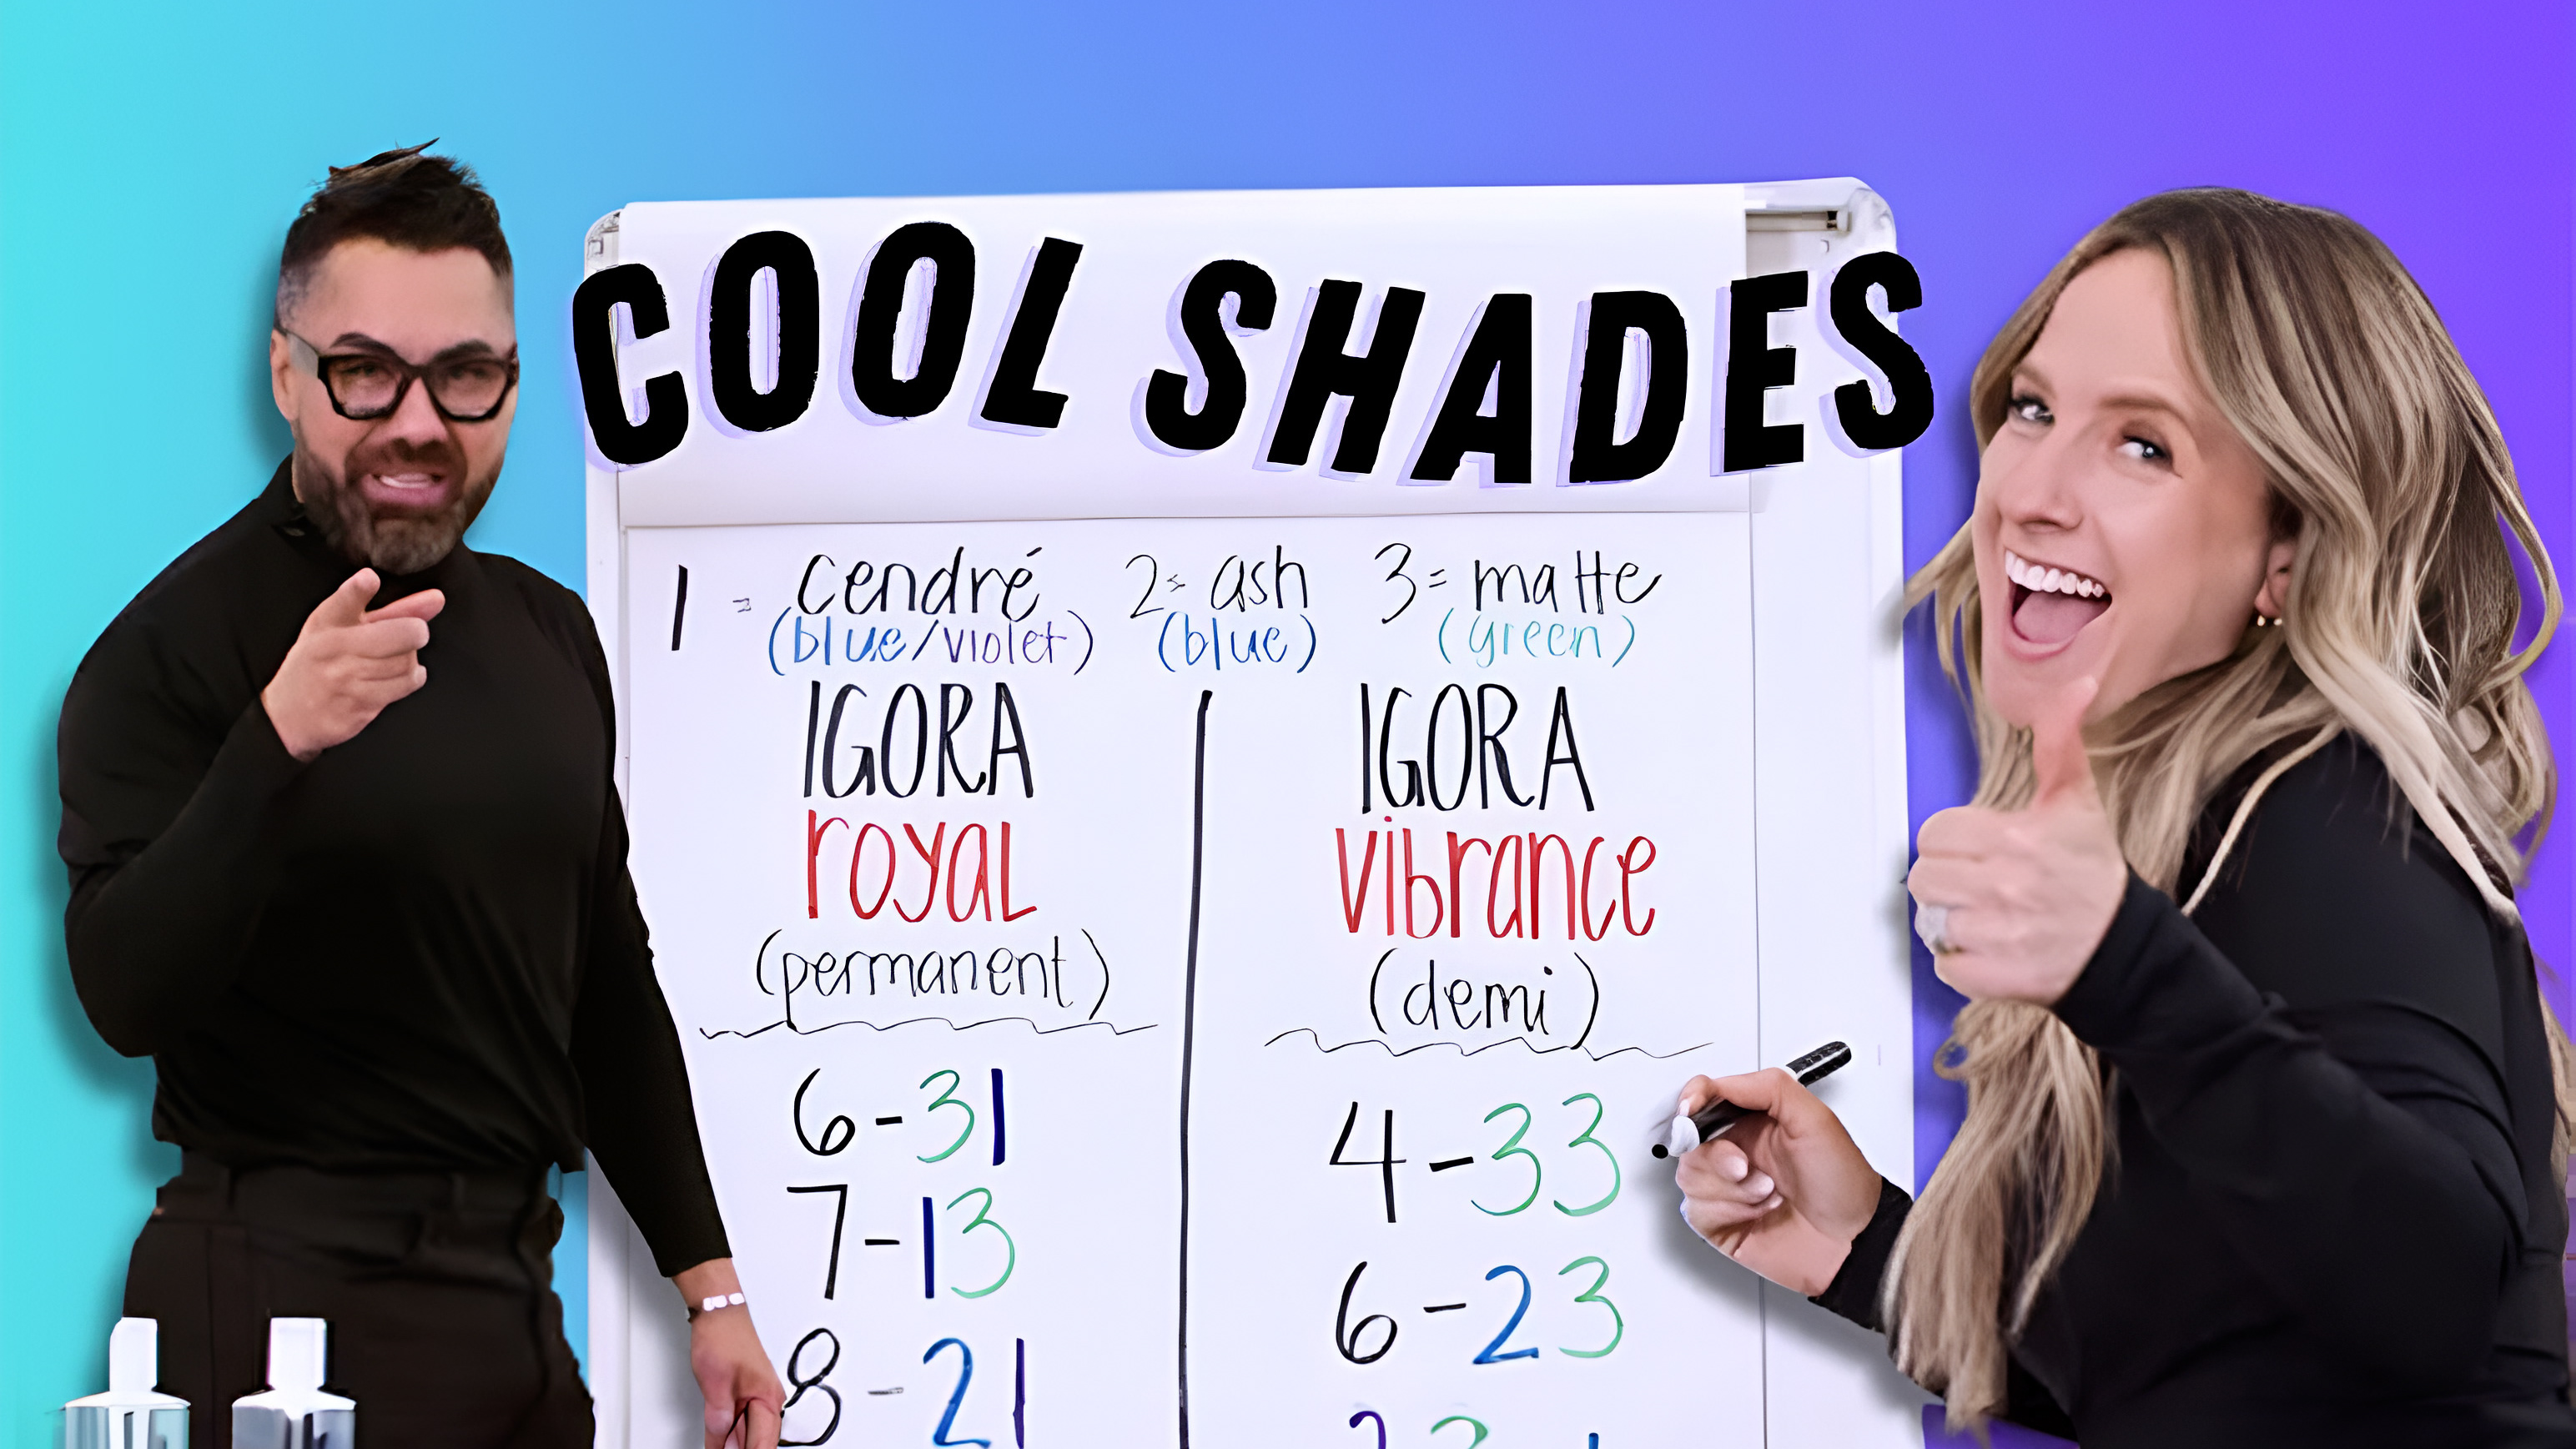 COOL SHADES
1 = cendré 2= ash 3= matte
(blue/violet) (blue) (green)
IGORA
royal
(permanent)
6-31
7-13
8-21
IGORA
vibrance
(demi)
4-33
6-23